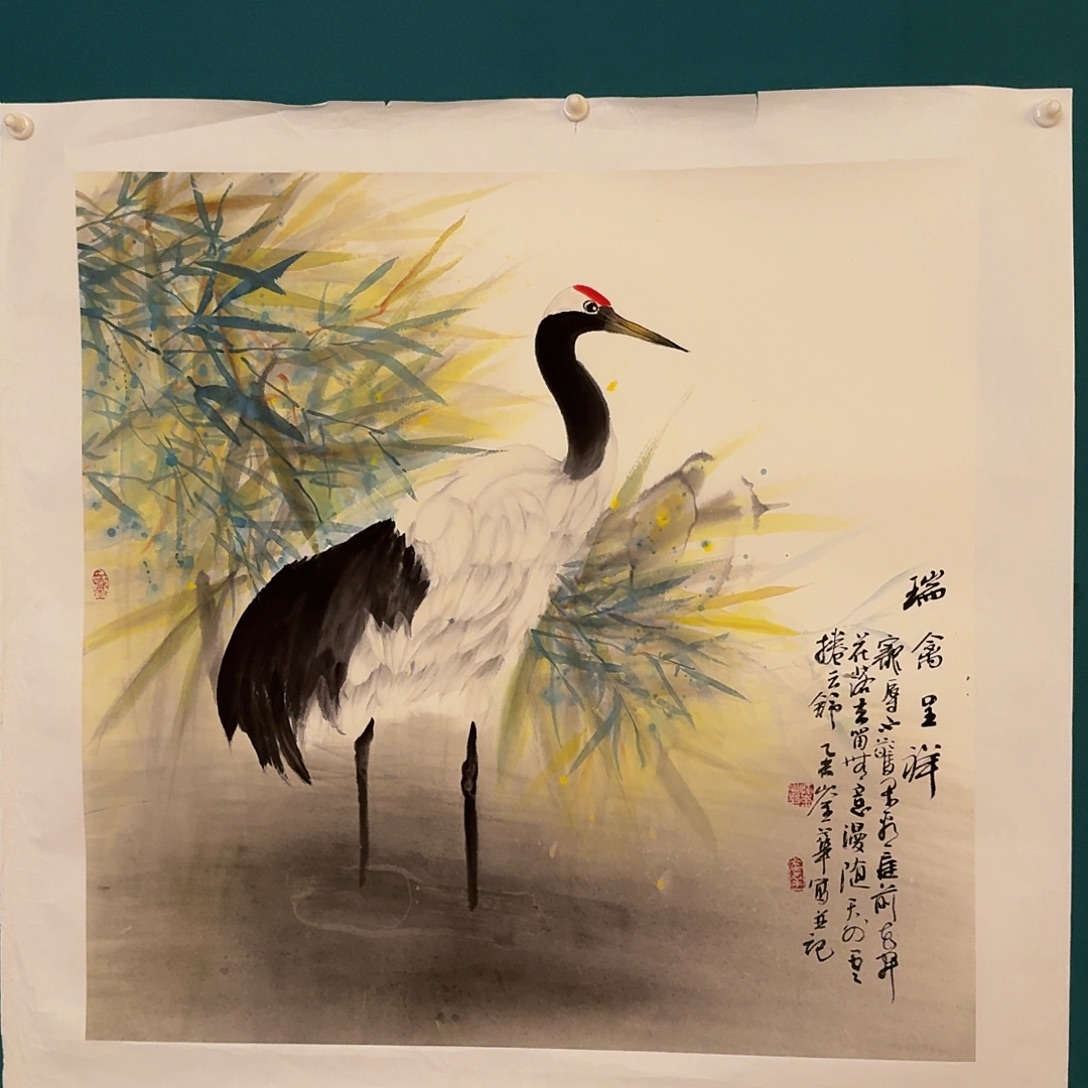 瑞禽呈祥
寵辱不驚閑看庭前花開
花落去留無意漫随天外雲
捲云舒 華寫並記